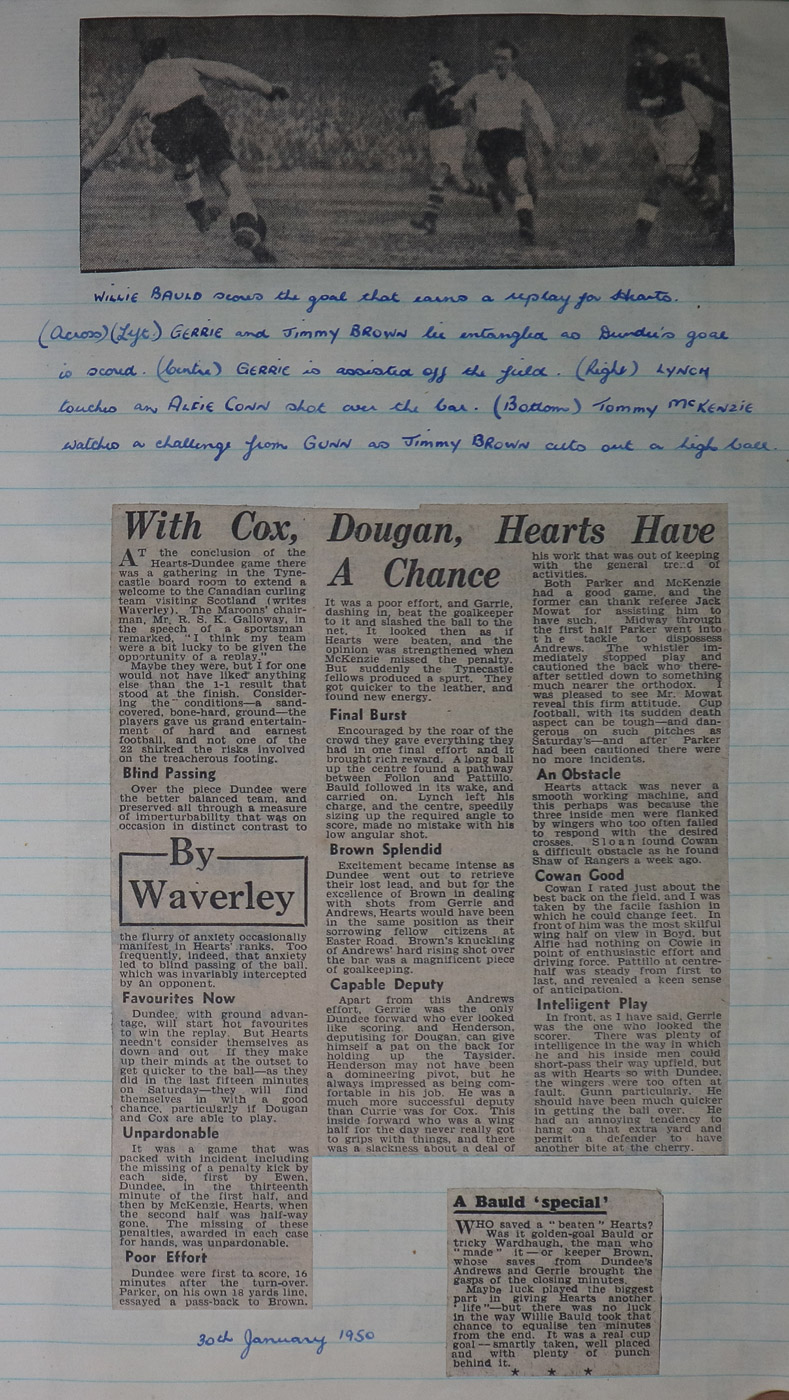 WILLIE BAULD scores the goal that earns a replay for Hearts.
(Across) (Left) GERRIE and JIMMY BROWN lie entangled as Dundee's goal
is scored. (Centre) GERRIE is assisted off the field. (Right) LYNCH
touches an ALFIE CONN shot over the bar. (Bottom) Tommy McKENZIE
watches a challenge from GUNN as JIMMY BROWN cuts out a high ball.
With Cox, Dougan, Hearts Have
A Chance
AT the conclusion of the
Hearts-Dundee game there
was a gathering in the Tyne-
castle board room to extend a
welcome to the Canadian curling
team visiting Scotland (writes
Waverley). The Maroons' chair-
man, Mr. R. S. K. Galloway, in
the speech of a sportsman
remarked, "I think my team
were a bit lucky to be given the
opportunity of a replay."
Maybe they were, but I for one
would not have liked anything
else than the 1-1 result that
stood at the finish. Consider-
ing the conditions—a sand-
covered, bone-hard, ground—the
players gave us grand entertain-
ment of hard and earnest
football, and not one of the
22 shirked the risks involved
on the treacherous footing.
Blind Passing
Over the piece Dundee were
the better balanced team, and
preserved all through a measure
of imperturbability that was on
occasion in distinct contrast to
By
Waverley
the flurry of anxiety occasionally
manifest in Hearts' ranks. Too
frequently, indeed, that anxiety
led to blind passing of the ball,
which was invariably intercepted
by an opponent.
Favourites Now
Dundee, with ground advan-
tage, will start hot favourites
to win the replay. But Hearts
needn't consider themselves as
down and out. If they make
up their minds at the outset to
get quicker to the ball—as they
did in the last fifteen minutes
on Saturday—they will find
themselves in with a good
chance, particularly if Dougan
and Cox are able to play.
Unpardonable
It was a game that was
packed with incident including
the missing of a penalty kick by
each side, first by Ewen,
Dundee, in the thirteenth
minute of the first half, and
then by McKenzie, Hearts, when
the second half was half-way
gone. The missing of these
penalties, awarded in each case
for hands, was unpardonable.
Poor Effort
Dundee were first to score, 16
minutes after the turn-over.
Parker, on his own 18 yards line,
essayed a pass-back to Brown.
It was a poor effort, and Garrie,
dashing in, beat the goalkeeper
to it and slashed the ball to the
net. It looked then as if
Hearts were beaten, and the
opinion was strengthened when
McKenzie missed the penalty.
But suddenly the Tynecastle
fellows produced a spurt. They
got quicker to the leather, and
found new energy.
Final Burst
Encouraged by the roar of the
crowd they gave everything they
had in one final effort and it
brought rich reward. A long ball
up the centre found a pathway
between Follon and Pattillo.
Bauld followed in its wake, and
carried on. Lynch left his
charge, and the centre, speedily
sizing up the required angle to
score, made no mistake with his
low angular shot.
Brown Splendid
Excitement became intense as
Dundee went out to retrieve
their lost lead, and but for the
excellence of Brown in dealing
with shots from Gerrie and
Andrews, Hearts would have been
in the same position as their
sorrowing fellow citizens at
Easter Road. Brown's knuckling
of Andrews' hard rising shot over
the bar was a magnificent piece
of goalkeeping.
Capable Deputy
Apart from this Andrews
effort, Gerrie was the only
Dundee forward who ever looked
like scoring, and Henderson,
deputising for Dougan, can give
himself a pat on the back for
holding up the Taysider.
Henderson may not have been
a domineering pivot, but he
always impressed as being com-
fortable in his job. He was a
much more successful deputy
than Currie was for Cox. This
inside forward who was a wing
half for the day never really got
to grips with things, and there
was a slackness about a deal of
his work that was out of keeping
with the general trend of
activities.
Both Parker and McKenzie
had a good game, and the
former can thank referee Jack
Mowat for assisting him to
have such. Midway through
the first half Parker went into
the tackle to dispossess
Andrews. The whistler im-
mediately stopped play and
cautioned the back who there-
after settled down to something
much nearer the orthodox. I
was pleased to see Mr. Mowat
reveal this firm attitude. Cup
football, with its sudden death
aspect can be tough—and dan-
gerous on such pitches as
Saturday's—and after Parker
had been cautioned there were
no more incidents.
An Obstacle
Hearts attack was never a
smooth working machine, and
this perhaps was because the
three inside men were flanked
by wingers who too often failed
to respond with the desired
crosses. Sloan found Cowan
a difficult obstacle as he found
Shaw of Rangers a week ago.
Cowan Good
Cowan I rated just about the
best back on the field, and I was
taken by the facile fashion in
which he could change feet. In
front of him was the most skilful
wing half on view in Boyd, but
Alfie had nothing on Cowie in
point of enthusiastic effort and
driving force. Pattillo at centre-
half was steady from first to
last, and revealed a keen sense
of anticipation.
Intelligent Play
In front, as I have said, Gerrie
was the one who looked the
scorer. There was plenty of
intelligence in the way in which
he and his inside men could
short-pass their way upfield, but
as with Hearts so with Dundee,
the wingers were too often at
fault. Gunn particularly. He
should have been much quicker
in getting the ball over. He
had an annoying tendency to
hang on that extra yard and
permit a defender to have
another bite at the cherry.
A Bauld 'special'
WHO saved a "beaten" Hearts?
Was it golden-goal Bauld or
tricky Wardhaugh, the man who
"made" it—or keeper Brown,
whose saves from Dundee's
Andrews and Gerrie brought the
gasps of the closing minutes.
Maybe luck played the biggest
part in giving Hearts another
'life"—but there was no luck
in the way Willie Bauld took that
chance to equalise ten minutes
from the end. It was a real cup
goal—smartly taken, well placed
and with plenty of punch
behind it.
* * *
30th January 1950